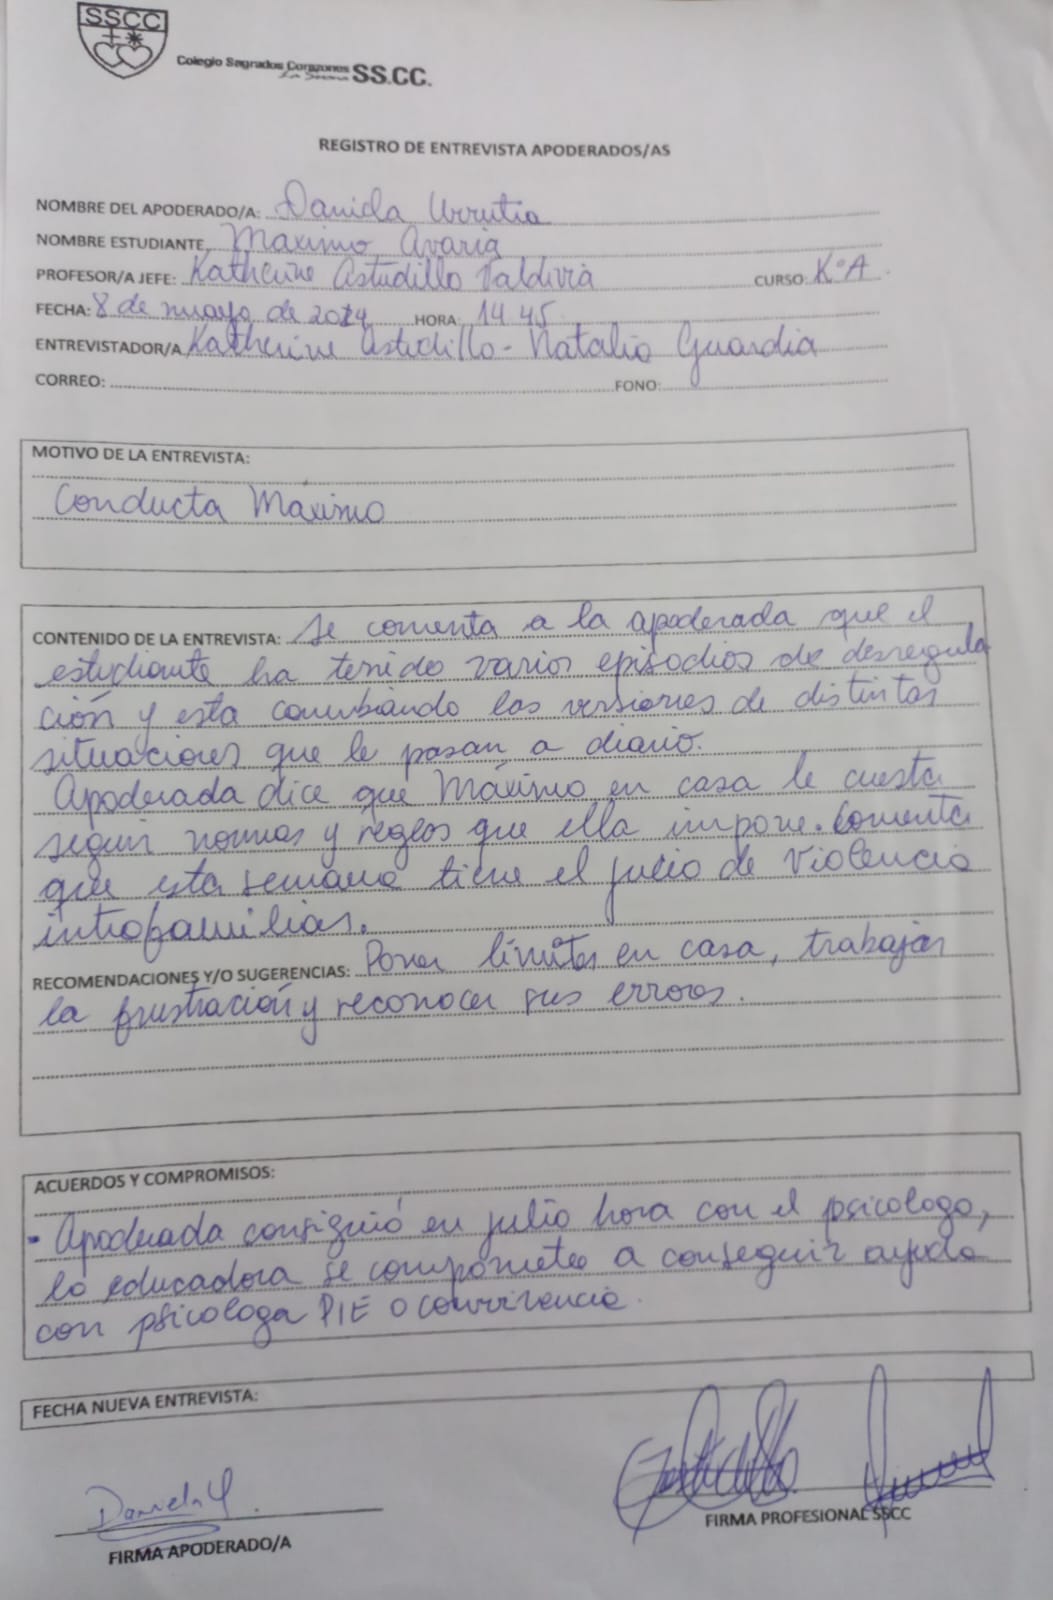 SSCC
Colegio Sagrados Corazones SS.CC.
La Serena
REGISTRO DE ENTREVISTA APODERADOS/AS
NOMBRE DEL APODERADO/A: Daniela Urrutia
NOMBRE ESTUDIANTE, Maximo Avaria
PROFESOR/A JEFE: Katherine Astudillo Valdivia CURSO: K°A
FECHA: 8 de mayo de 2024 HORA: 14 45
ENTREVISTADOR/A Katherine Astudillo - Natalia Guardia
CORREO: FONO:
MOTIVO DE LA ENTREVISTA:
Conducta Máximo
CONTENIDO DE LA ENTREVISTA: Se comenta a la apoderada que el
estudiante ha tenido varios episodios de desregula
ción y esta cambiando las versiones de distintas
situaciones que le pasan a diario.
Apoderada dice que Máximo en casa le cuesta
seguir normas y reglas que ella impone. Comenta
que esta semana tiene el juicio de Violencia
intrafamiliar.
RECOMENDACIONES Y/O SUGERENCIAS: Poner límites en casa, trabajar
la frustración y reconocer sus errores.
ACUERDOS Y COMPROMISOS:
- Apoderada consiguió en julio hora con el psicologo,
la educadora se compromete a conseguir ayuda
con psicologa PIE o convivencia.
FECHA NUEVA ENTREVISTA:
Daniela U.
FIRMA APODERADO/A
FIRMA PROFESIONAL SSCC